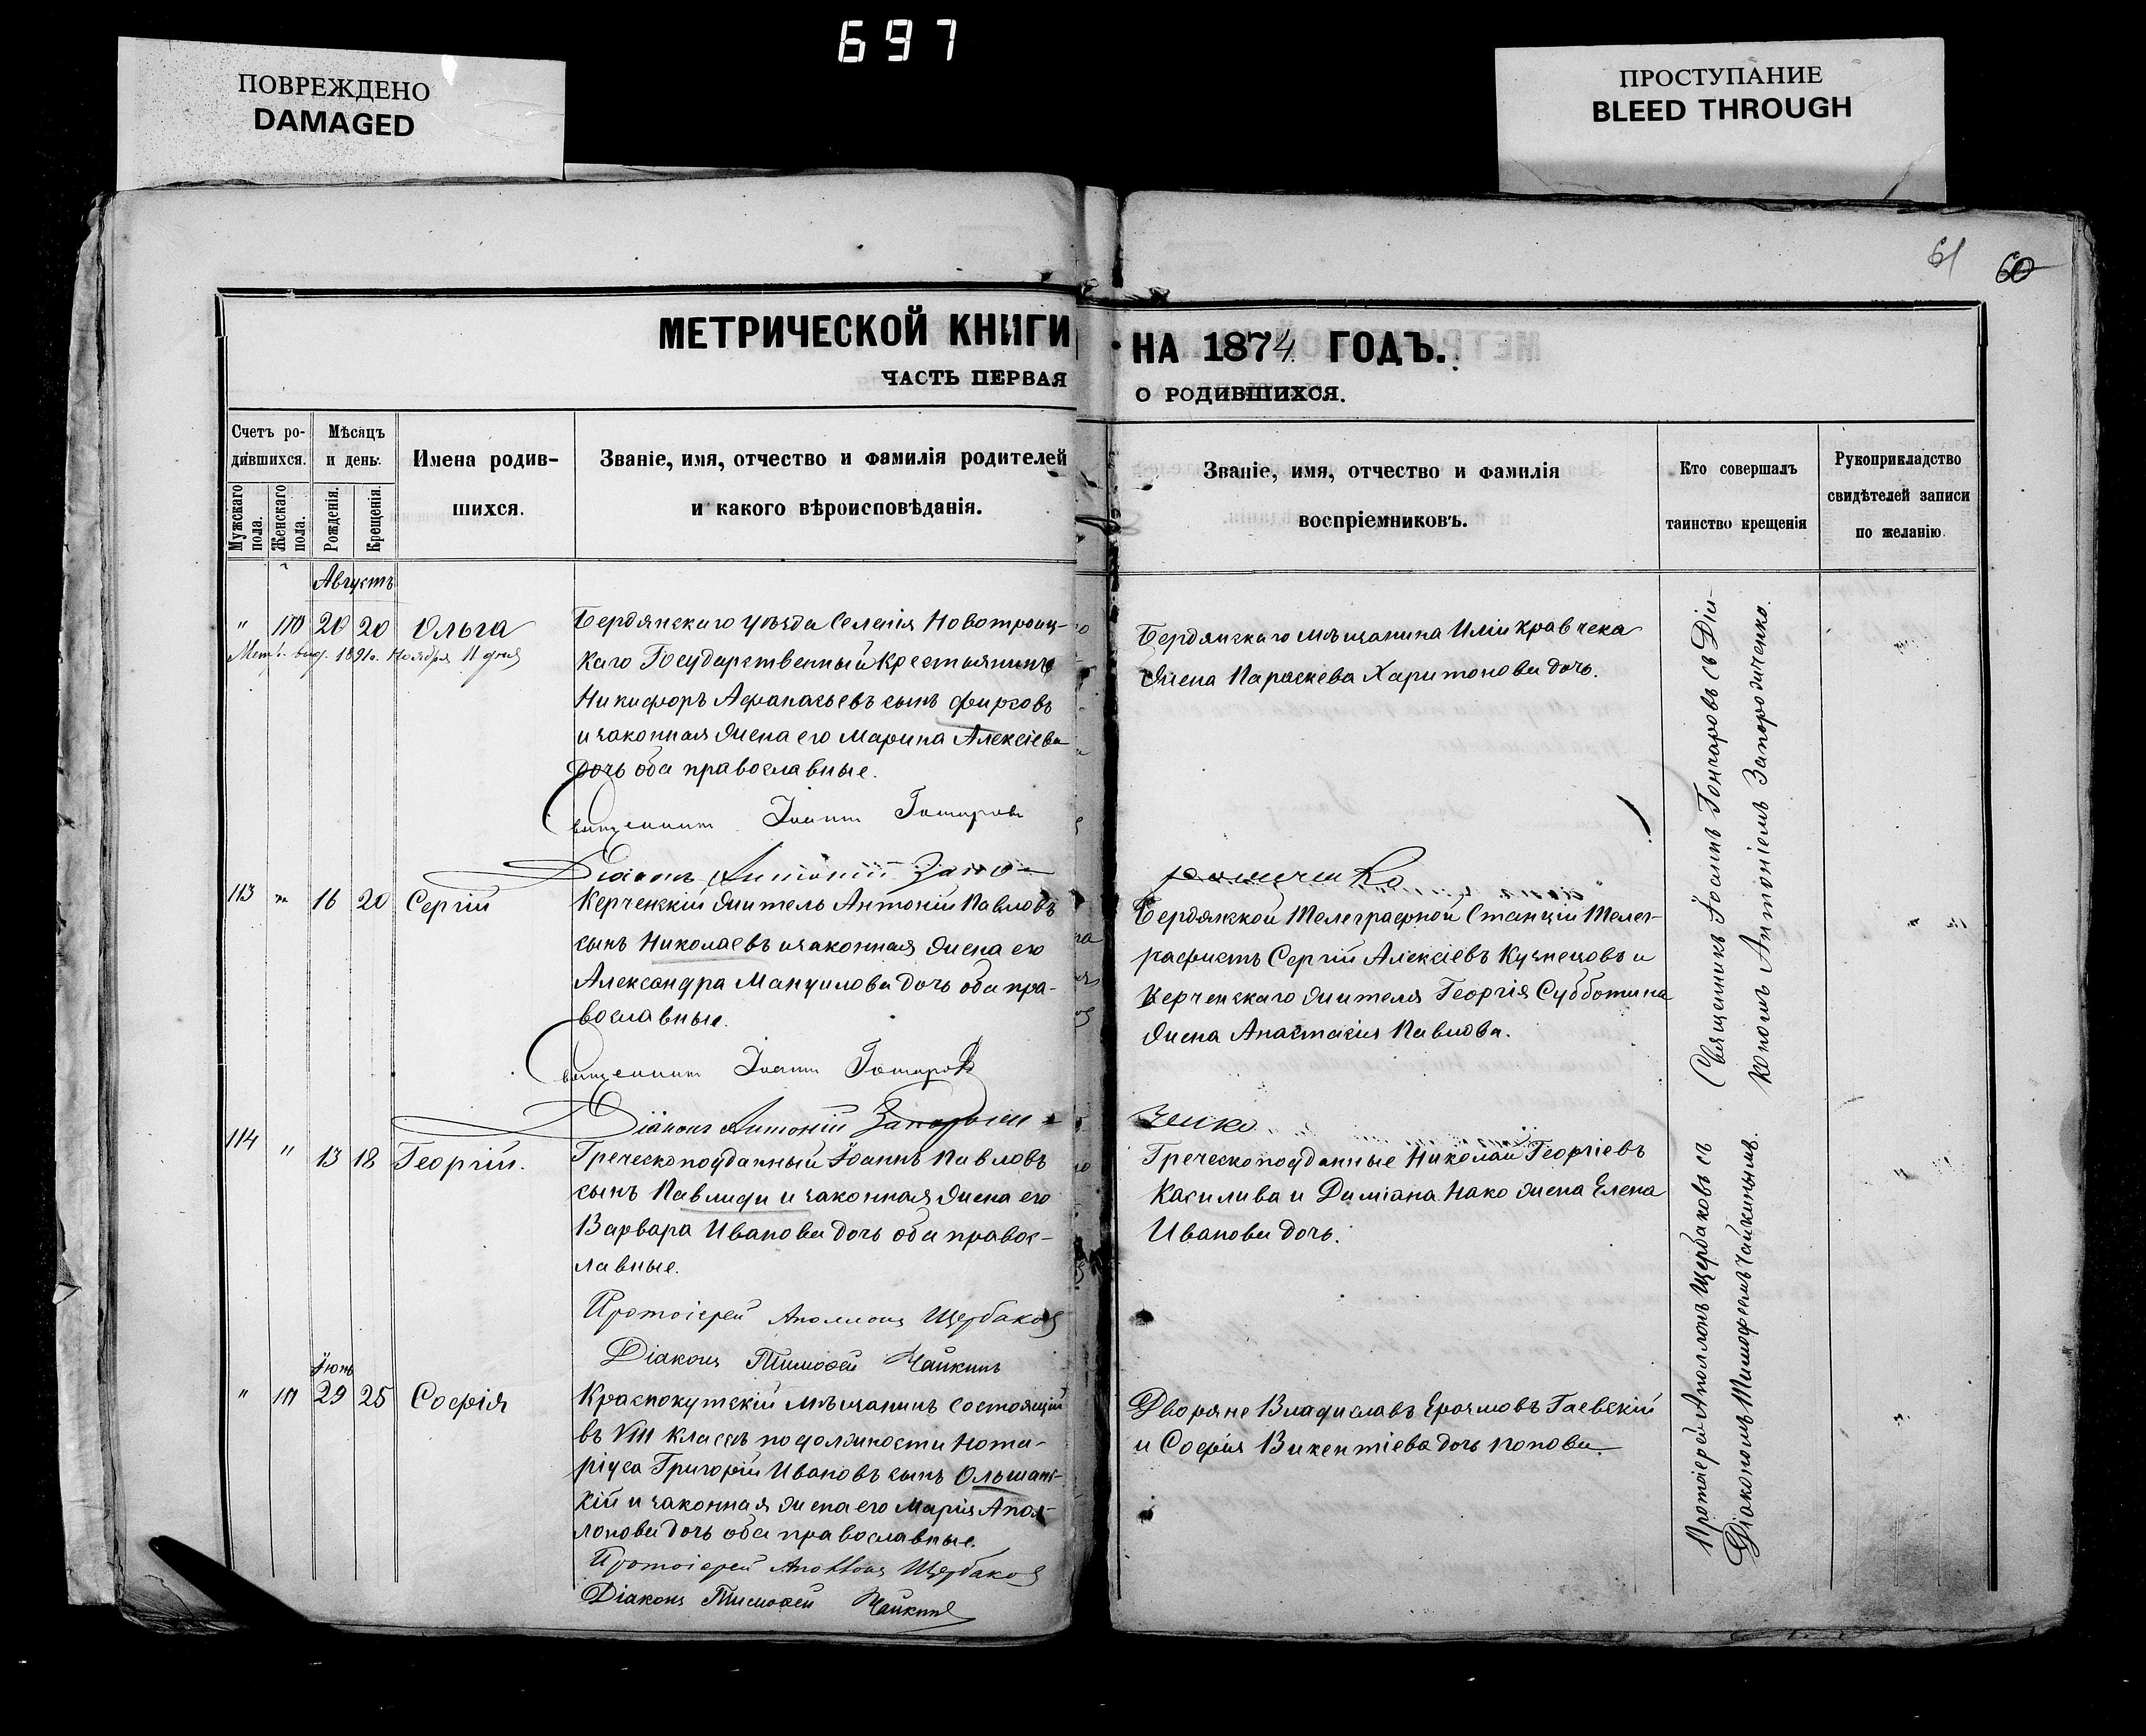 697
ПОВРЕЖДЕНО
DAMAGED
ПРОСТУПАНИЕ
BLEED THROUGH
61 60
МЕТРИЧЕСКОЙ КНИГИ
ЧАСТЬ ПЕРВАЯ
НА 1874 ГОДЪ.
О РОДИВШИХСЯ.
Счетъ ро-
дившихся.
Мужскаго пола.
Женскаго пола.
Мѣсяцъ
и день.
Рожденія.
Крещенія.
Имена родив-
шихся.
Званіе, имя, отчество и фамилія родителей
и какого вѣроисповѣданія.
Званіе, имя, отчество и фамилія
воспріемниковъ.
Кто совершалъ
таинство крещенія
Рукоприкладство
свидѣтелей записи
по желанію
Августъ
" 110 20 20 Ольга
Метр. выд. 1891 г. Ноября 11 дня
Бердянскаго уѣзда Селенія Новотроиц-
каго Государственный Крестьянинъ
Никифоръ Афанасьевъ сынъ Фирсовъ
и законная жена его Марина Алексіева
дочь оба православные.
Священник Іоанн Гончаровъ
Діаконъ Антоній Запо-
Бердянскаго мѣщанина Иліи Кравчека
жена Параскева Харитонова дочь.
роженко
113 " 16 20 Сергій
Керченскій житель Антоній Павловъ
сынъ Николаевъ и законная жена его
Александра Мануилова дочь оба пра-
вославные.
Священник Іоанн Гончаровъ
Діаконъ Антоній Запорож-
Бердянской Телеграфной Станціи Телег-
рафистъ Сергій Алексіевъ Кузнецовъ и
Керченскаго жителя Георгія Субботина
жена Анастасія Павлова.
ченко
114 " 13 18 Георгій.
Греческоподданный Іоаннъ Павловъ
сынъ Павлиди и законная жена его
Варвара Иванова дочь оба правос-
лавные.
Протоіерей Аполлонъ Щербаковъ
Діаконъ Тимофей Чайкинъ
Греческоподданные Николай Георгіевъ
Касилива и Даміана Нако жена Елена
Иванова дочь.
Іюнь
" 111 29 25 Софія
Краснокутскій мѣщанинъ состоящій
въ VIII классѣ по должности Нота-
ріуса Григорій Ивановъ сынъ Ольшанс-
кій и законная жена его Марія Апол-
лонова дочь оба православные.
Протоіерей Аполлонъ Щербаковъ
Діаконъ Тимофей Чайкинъ
Дворяне Владиславъ Ерозмовъ Гаевскій
и Софія Викентіева дочь Попова.
Священникъ Іоаннъ Гончаровъ съ Діа-
кономъ Антоніемъ Запорожченко.
Протоіерей Аполлонъ Щербаковъ съ
Діакономъ Тимофеемъ Чайкинымъ.